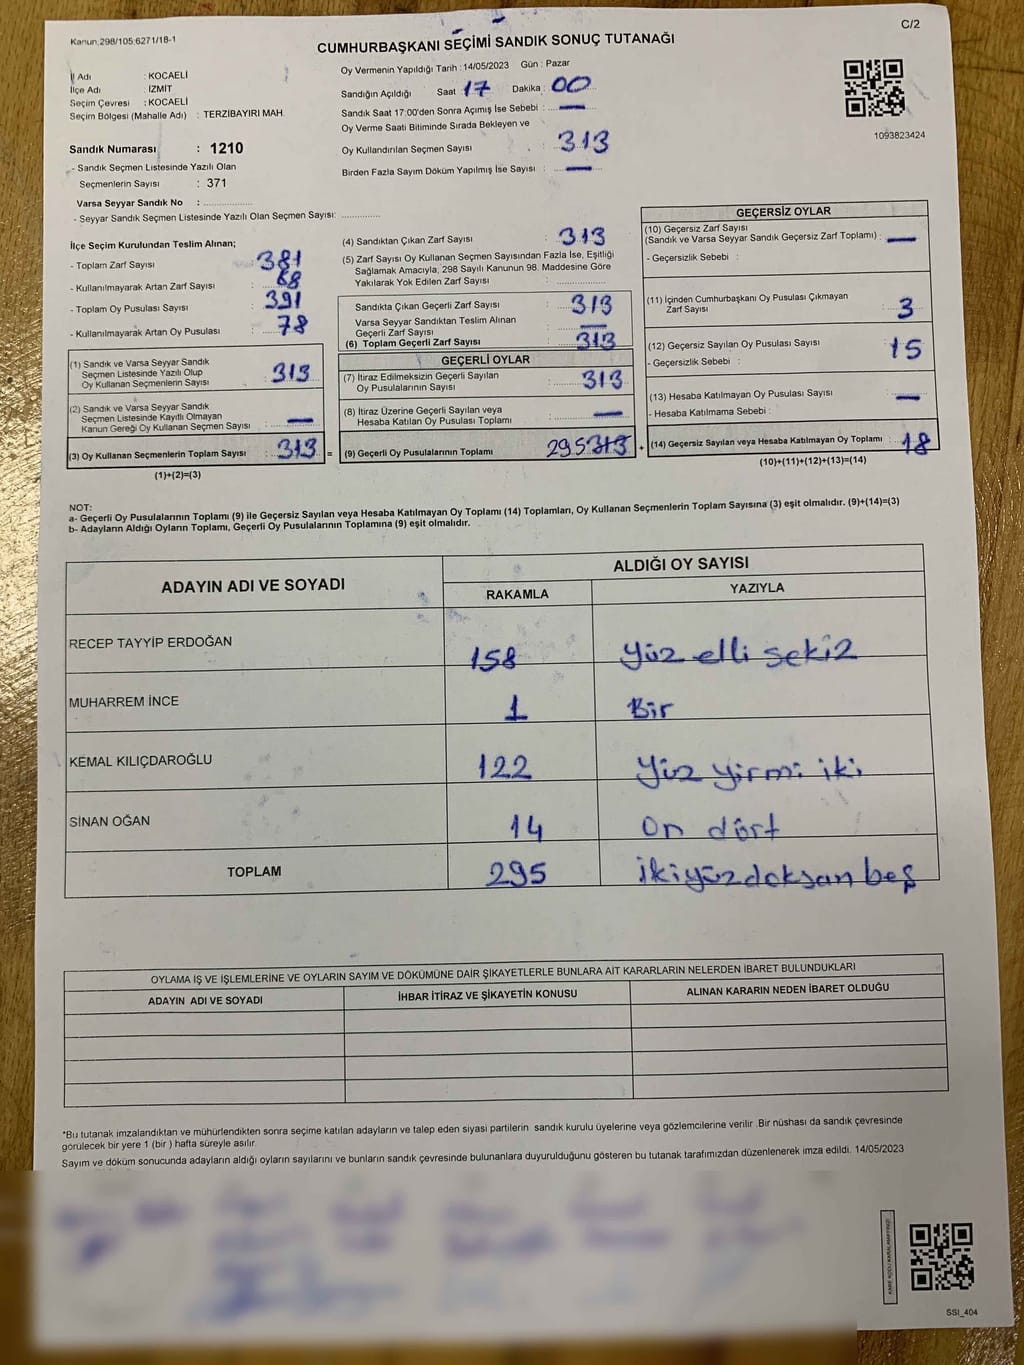 Kanun.298/105.6271/18-1
C/2
CUMHURBAŞKANI SEÇİMİ SANDIK SONUÇ TUTANAĞI
İl Adı : KOCAELİ
İlçe Adı : İZMİT
Seçim Çevresi : KOCAELİ
Seçim Bölgesi (Mahalle Adı) : TERZİBAYIRI MAH.
Sandık Numarası : 1210
- Sandık Seçmen Listesinde Yazılı Olan
Seçmenlerin Sayısı : 371
Varsa Seyyar Sandık No : ................
- Seyyar Sandık Seçmen Listesinde Yazılı Olan Seçmen Sayısı: .............
Oy Vermenin Yapıldığı Tarih : 14/05/2023 Gün : Pazar
Sandığın Açıldığı Saat 17 Dakika : 00
Sandık Saat 17:00'den Sonra Açımış İse Sebebi : —
Oy Verme Saati Bitiminde Sırada Bekleyen ve
Oy Kullandırılan Seçmen Sayısı : 313
Birden Fazla Sayım Döküm Yapılmış İse Sayısı : —
1093823424
İlçe Seçim Kurulundan Teslim Alınan;
- Toplam Zarf Sayısı : 381
- Kullanılmayarak Artan Zarf Sayısı : 68
- Toplam Oy Pusulası Sayısı : 391
- Kullanılmayarak Artan Oy Pusulası : 78
(1) Sandık ve Varsa Seyyar Sandık
Seçmen Listesinde Yazılı Olup
Oy Kullanan Seçmenlerin Sayısı : 313
(2) Sandık ve Varsa Seyyar Sandık
Seçmen Listesinde Kayıtlı Olmayan
Kanun Gereği Oy Kullanan Seçmen Sayısı : —
(3) Oy Kullanan Seçmenlerin Toplam Sayısı : 313 =
(1)+(2)=(3)
(4) Sandıktan Çıkan Zarf Sayısı : 313
(5) Zarf Sayısı Oy Kullanan Seçmen Sayısından Fazla İse, Eşitliği
Sağlamak Amacıyla, 298 Sayılı Kanunun 98. Maddesine Göre
Yakılarak Yok Edilen Zarf Sayısı :
Sandıkta Çıkan Geçerli Zarf Sayısı : 313
Varsa Seyyar Sandıktan Teslim Alınan
Geçerli Zarf Sayısı : —
(6) Toplam Geçerli Zarf Sayısı : 313
GEÇERLİ OYLAR
(7) İtiraz Edilmeksizin Geçerli Sayılan
Oy Pusulalarının Sayısı : 313
(8) İtiraz Üzerine Geçerli Sayılan veya
Hesaba Katılan Oy Pusulası Toplamı : —
(9) Geçerli Oy Pusulalarının Toplamı 295 313 +
GEÇERSİZ OYLAR
(10) Geçersiz Zarf Sayısı
(Sandık ve Varsa Seyyar Sandık Geçersiz Zarf Toplamı) : —
- Geçersizlik Sebebi :
(11) İçinden Cumhurbaşkanı Oy Pusulası Çıkmayan
Zarf Sayısı : 3
(12) Geçersiz Sayılan Oy Pusulası Sayısı : 15
- Geçersizlik Sebebi :
(13) Hesaba Katılmayan Oy Pusulası Sayısı : —
- Hesaba Katılmama Sebebi :
(14) Geçersiz Sayılan veya Hesaba Katılmayan Oy Toplamı : 18
(10)+(11)+(12)+(13)=(14)
NOT:
a- Geçerli Oy Pusulalarının Toplamı (9) ile Geçersiz Sayılan veya Hesaba Katılmayan Oy Toplamı (14) Toplamları, Oy Kullanan Seçmenlerin Toplam Sayısına (3) eşit olmalıdır. (9)+(14)=(3)
b- Adayların Aldığı Oyların Toplamı, Geçerli Oy Pusulalarının Toplamına (9) eşit olmalıdır.
ADAYIN ADI VE SOYADI
ALDIĞI OY SAYISI
RAKAMLA YAZIYLA
RECEP TAYYİP ERDOĞAN 158 Yüz elli sekiz
MUHARREM İNCE 1 Bir
KEMAL KILIÇDAROĞLU 122 Yüz yirmi iki
SİNAN OĞAN 14 On dört
TOPLAM 295 ikiyüzdoksan beş
OYLAMA İŞ VE İŞLEMLERİNE VE OYLARIN SAYIM VE DÖKÜMÜNE DAİR ŞİKAYETLERLE BUNLARA AİT KARARLARIN NELERDEN İBARET BULUNDUKLARI
ADAYIN ADI VE SOYADI İHBAR İTİRAZ VE ŞİKAYETİN KONUSU ALINAN KARARIN NEDEN İBARET OLDUĞU
*Bu tutanak imzalandıktan ve mühürlendikten sonra seçime katılan adayların ve talep eden siyasi partilerin sandık kurulu üyelerine veya gözlemcilerine verilir .Bir nüshası da sandık çevresinde
görülecek bir yere 1 (bir ) hafta süreyle asılır.
Sayım ve döküm sonucunda adayların aldığı oyların sayılarını ve bunların sandık çevresinde bulunanlara duyurulduğunu gösteren bu tutanak tarafımızdan düzenlenerek imza edildi. 14/05/2023
SSI_404